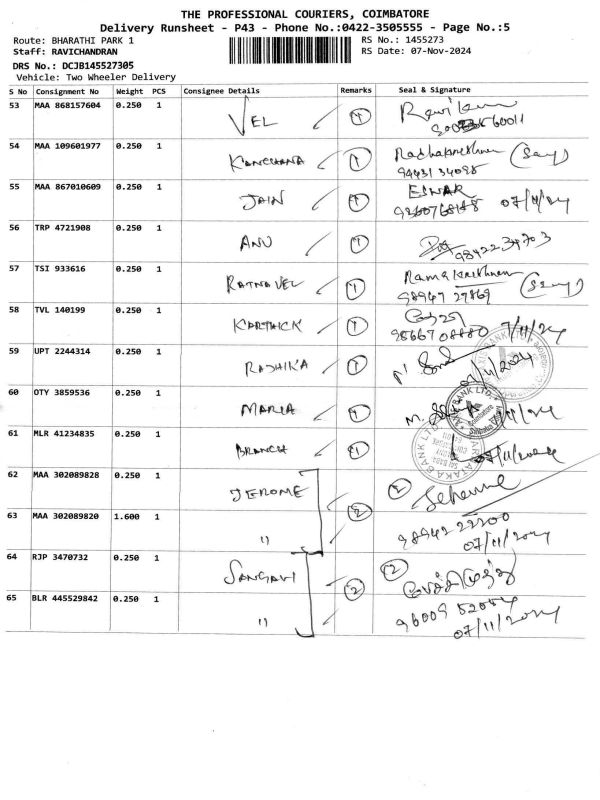 THE PROFESSIONAL COURIERS, COIMBATORE
Delivery Runsheet - P43 - Phone No.:0422-3505555 - Page No.:5
Route: BHARATHI PARK 1
RS No.: 1455273
Staff: RAVICHANDRAN
RS Date: 07-Nov-2024
DRS No.: DCJB145527305
Vehicle: Two Wheeler Delivery
S No Consignment No Weight PCS Consignee Details Remarks Seal & Signature
53 MAA 868157604 0.250 1 VEL 1
54 MAA 109601977 0.250 1 KANCHANA 1 Radhakrishnan
94431 34098
55 MAA 867010609 0.250 1 JAIN 1 ESWAR
9360768148 07/11/24
56 TRP 4721908 0.250 1 ANU 1
57 TSI 933616 0.250 1 RATNAVEL 1 Ramakrishnan
98947 27869
58 TVL 140199 0.250 1 KARTHICK 1
7/11/24
59 UPT 2244314 0.250 1 RADHIKA 1
60 OTY 3859536 0.250 1 MARIA 1
61 MLR 41234835 0.250 1 BRANCH 1
07/11/2024
62 MAA 302089828 0.250 1 JEROME 2 2
63 MAA 302089820 1.600 1 " 98942 22200
07/11/2024
64 RJP 3470732 0.250 1 SANGAVI 2 2
65 BLR 445529842 0.250 1 " 96009 52054
07/11/2024